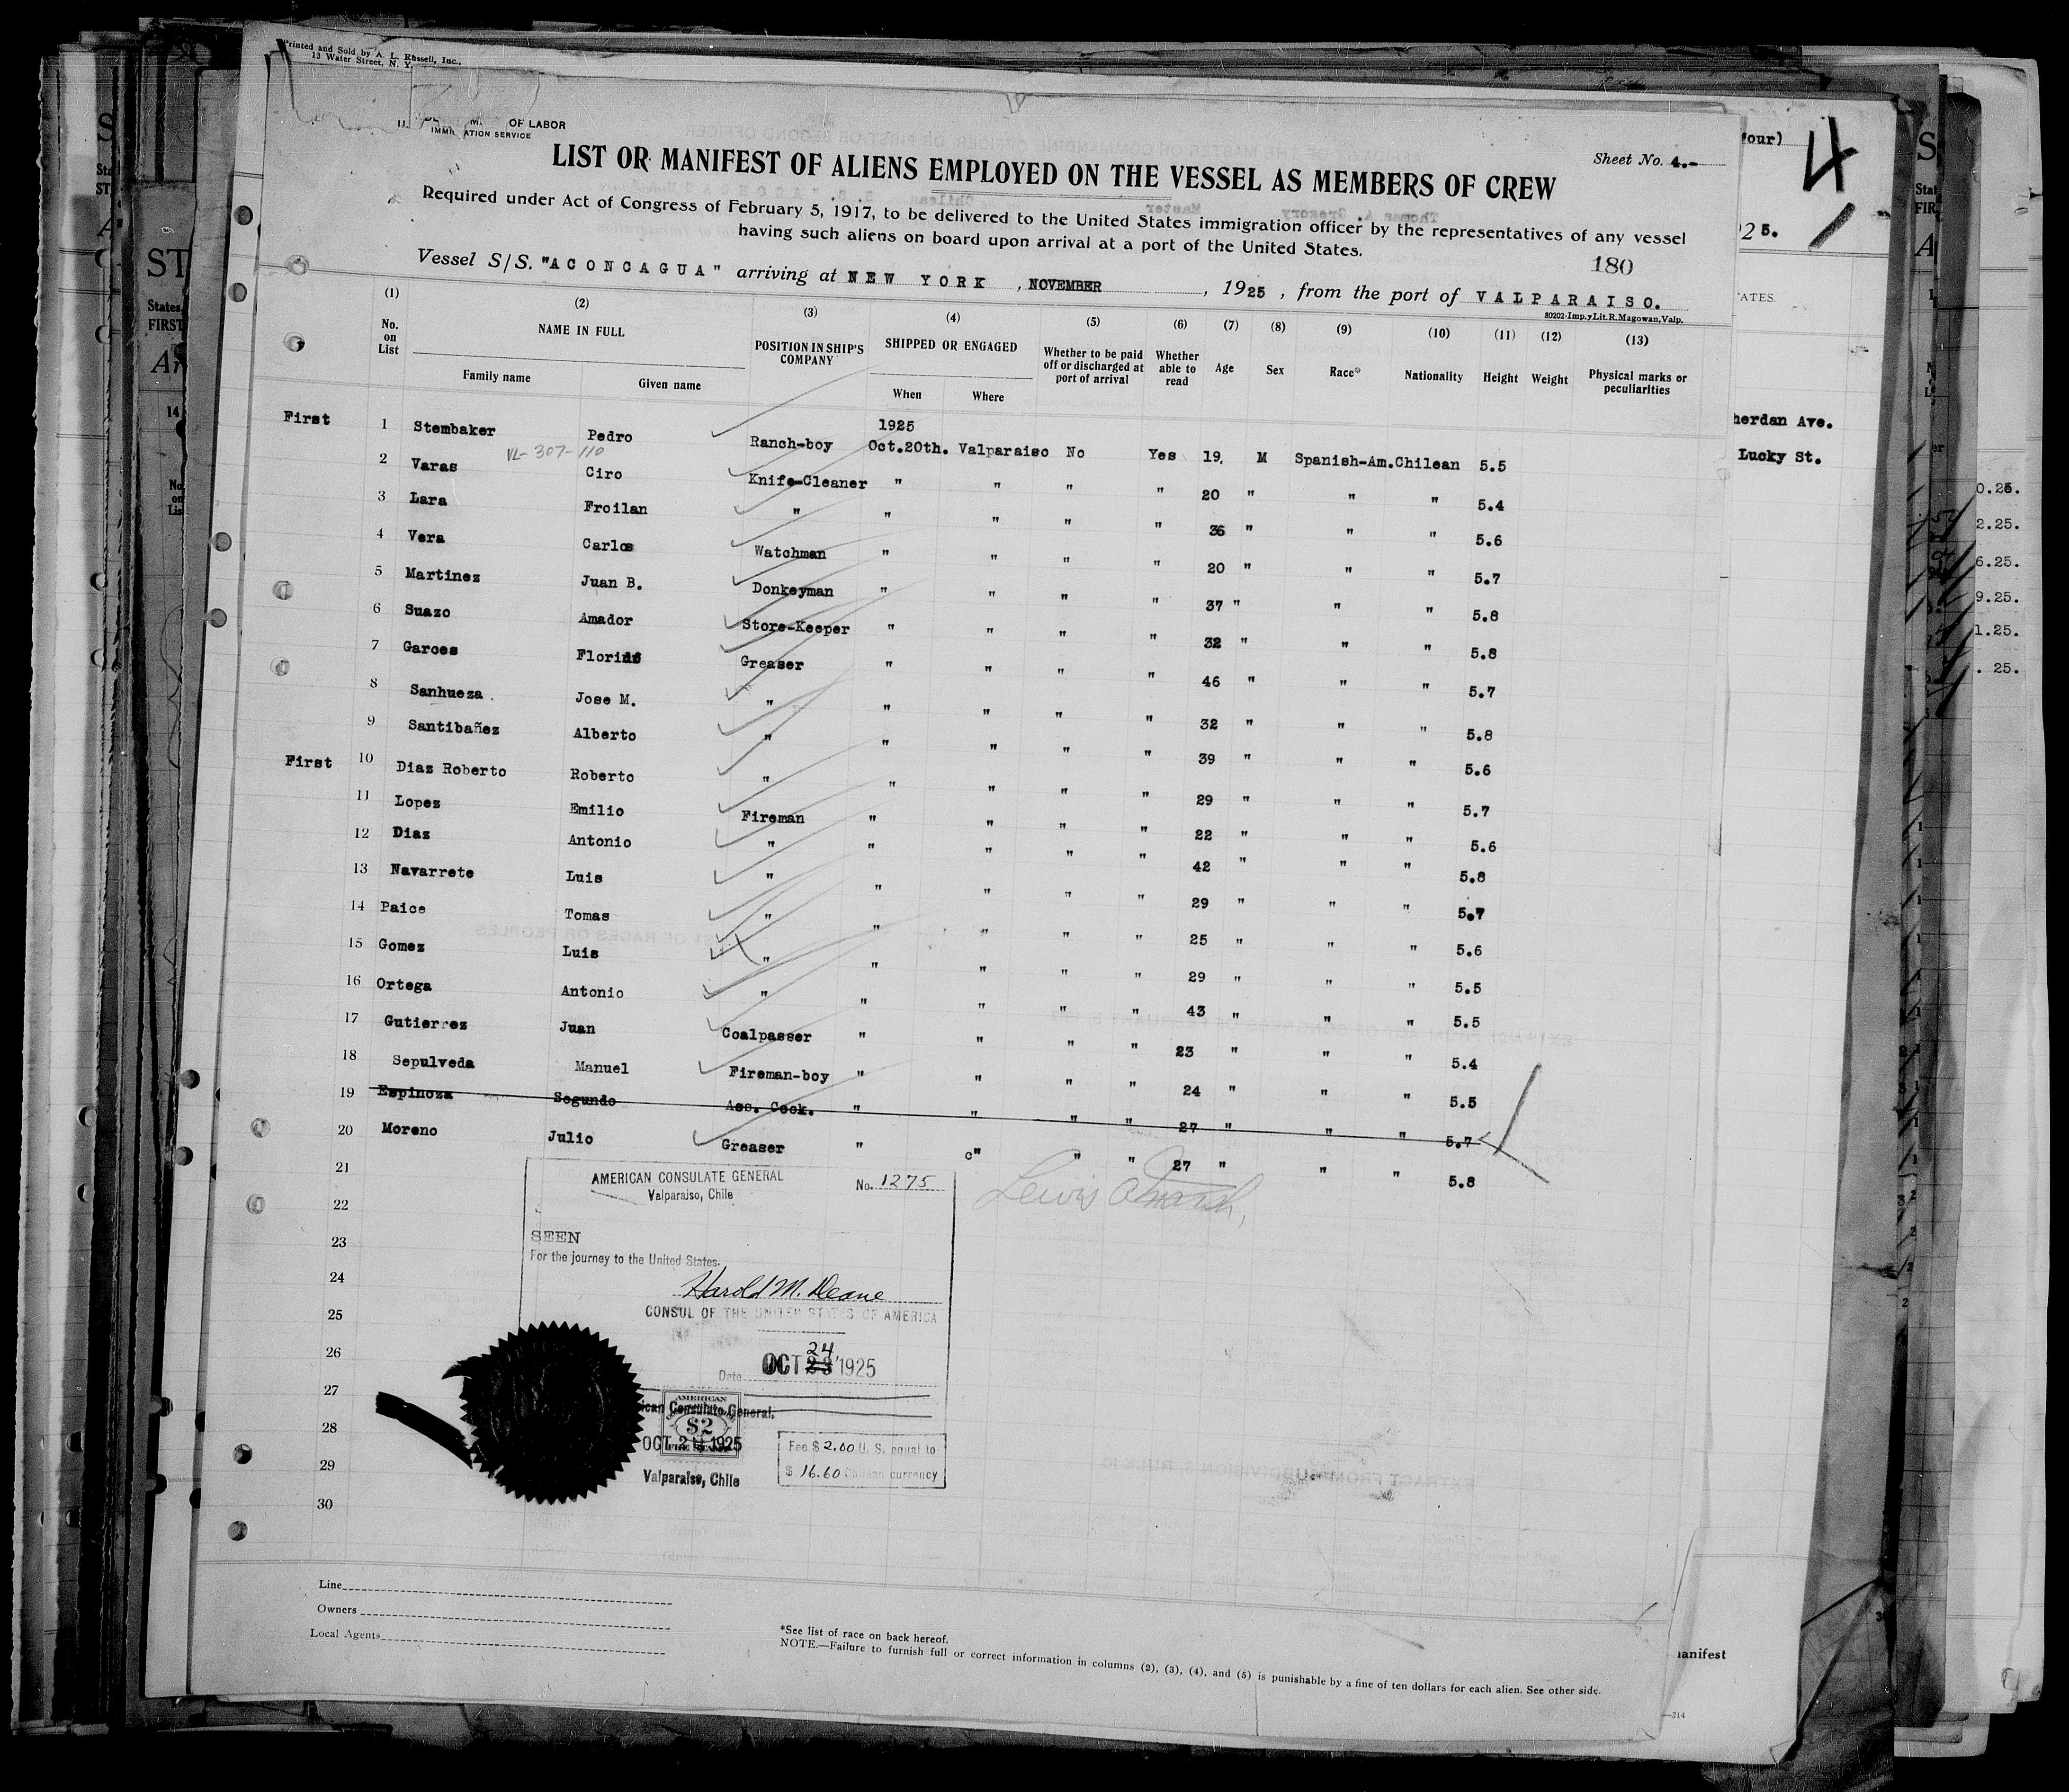 Printed and Sold by A. L. Russell, Inc.,
13 Water Street, N. Y.
OF LABOR
IMMI ATION SERVICE
Sheet No. 4.-
LIST OR MANIFEST OF ALIENS EMPLOYED ON THE VESSEL AS MEMBERS OF CREW
Required under Act of Congress of February 5, 1917, to be delivered to the United States immigration officer by the representatives of any vessel
having such aliens on board upon arrival at a port of the United States.
180
Vessel S/S. "ACONCAGUA" arriving at NEW YORK, NOVEMBER, 1925, from the port of VALPARAISO.
80202-Imp.y Lit.R.Magowan, Valp.
(1) (2) (3) (4) (5) (6) (7) (8) (9) (10) (11) (12) (13)
No. on List NAME IN FULL Family name Given name POSITION IN SHIP'S COMPANY SHIPPED OR ENGAGED When Where Whether to be paid off or discharged at port of arrival Whether able to read Age Sex Race* Nationality Height Weight Physical marks or peculiarities
1925
First 1 Stembaker Pedro Ranch-boy Oct.20th. Valparaiso No Yes 19. M Spanish-Am. Chilean 5.5
VL-307-110
2 Varas Ciro Knife-Cleaner " " " " 20 " " " 5.4
3 Lara Froilan " " " " " 36 " " " 5.6
4 Vera Carlos Watchman " " " " 20 " " " 5.7
5 Martinez Juan B. Donkeyman " " " " 37 " " " 5.8
6 Suazo Amador Store-Keeper " " " " 32 " " " 5.8
7 Garces Greaser " " " " 46 " " " 5.7
8 Sanhueza Jose M. " " " " " 32 " " " 5.8
9 Santibañez Alberto " " " " " 39 " " " 5.6
First 10 Diaz Roberto Roberto " " " " " 29 " " " 5.7
11 Lopez Emilio Fireman " " " " 22 " " " 5.6
12 Diaz Antonio " " " " " 42 " " " 5.8
13 Navarrete Luis " " " " " 29 " " " 5.7
14 Paice Tomas " " " " " 25 " " " 5.6
15 Gomez Luis " " " " " 29 " " " 5.5
16 Ortega Antonio " " " " " 43 " " " 5.5
17 Gutierrez Juan Coalpasser " " " " 23 " " " 5.4
18 Sepulveda Manuel Fireman-boy " " " " 24 " " " 5.5
19 Espinoza Segundo Ass. Cook. " " " " 27 " " " 5.7
20 Moreno Julio Greaser " c" " " 27 " " " 5.8
21
22
23
24
25
26
27
28
29
30
AMERICAN CONSULATE GENERAL
Valparaiso, Chile
No. 1275
SEEN
For the journey to the United States.
Harold M. Deane
CONSUL OF THE UNITED STATES OF AMERICA
24
Date OCT 23 1925
ican Consulate General.
AMERICAN
$2
OCT 24 1925
Valparaiso, Chile
Fee $ 2.00 U. S. equal to
$ 16.60 Chilean currency
Line
Owners
Local Agents
*See list of race on back hereof.
NOTE.—Failure to furnish full or correct information in columns (2), (3), (4), and (5) is punishable by a fine of ten dollars for each alien. See other side.
four)
4
25.
ATES.
herdan Ave.
Lucky St.
2.25.
6.25.
9.25.
1.25.
. 25.
anifest
—314
ST
States
FIRST
14